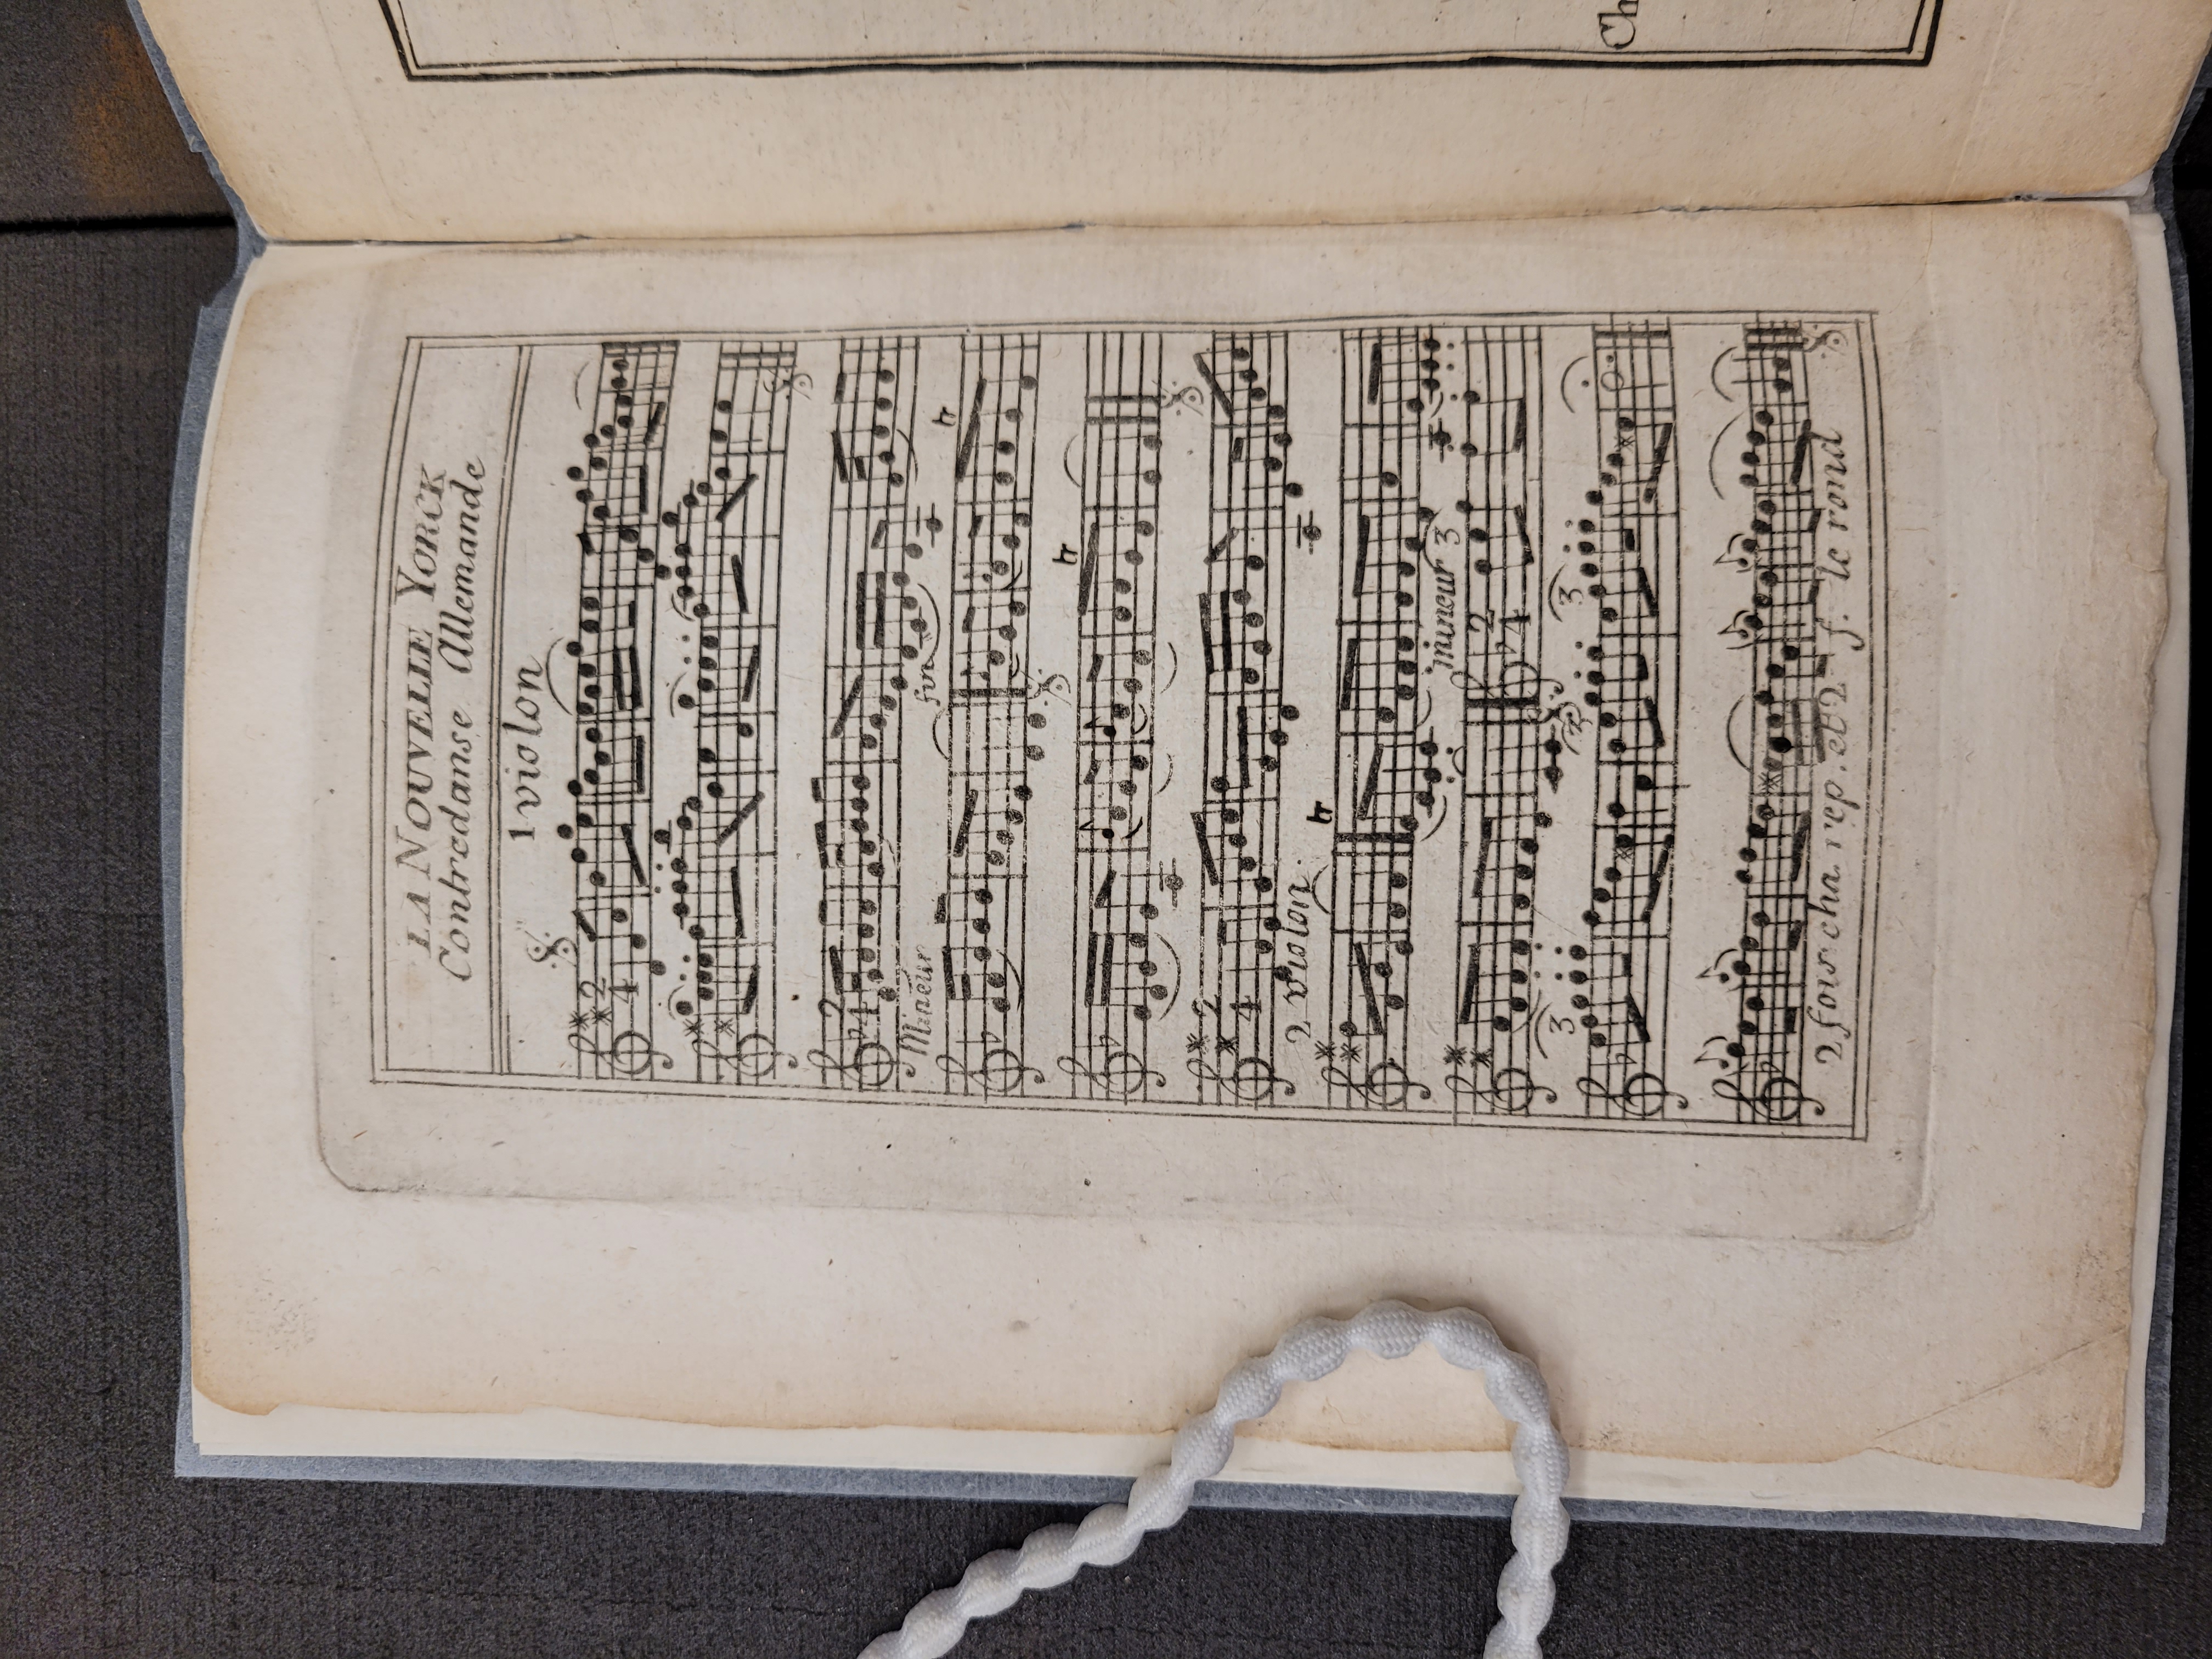 LA NOUVELLE YORCK
Contredanse Allemande
1 violon
2
4
2
4
Mineur
fin
tr
tr
2
4
2 violon
tr
mineur
3
2
4
3
3
2 fois cha rep. et 2 f. le rond
Ch